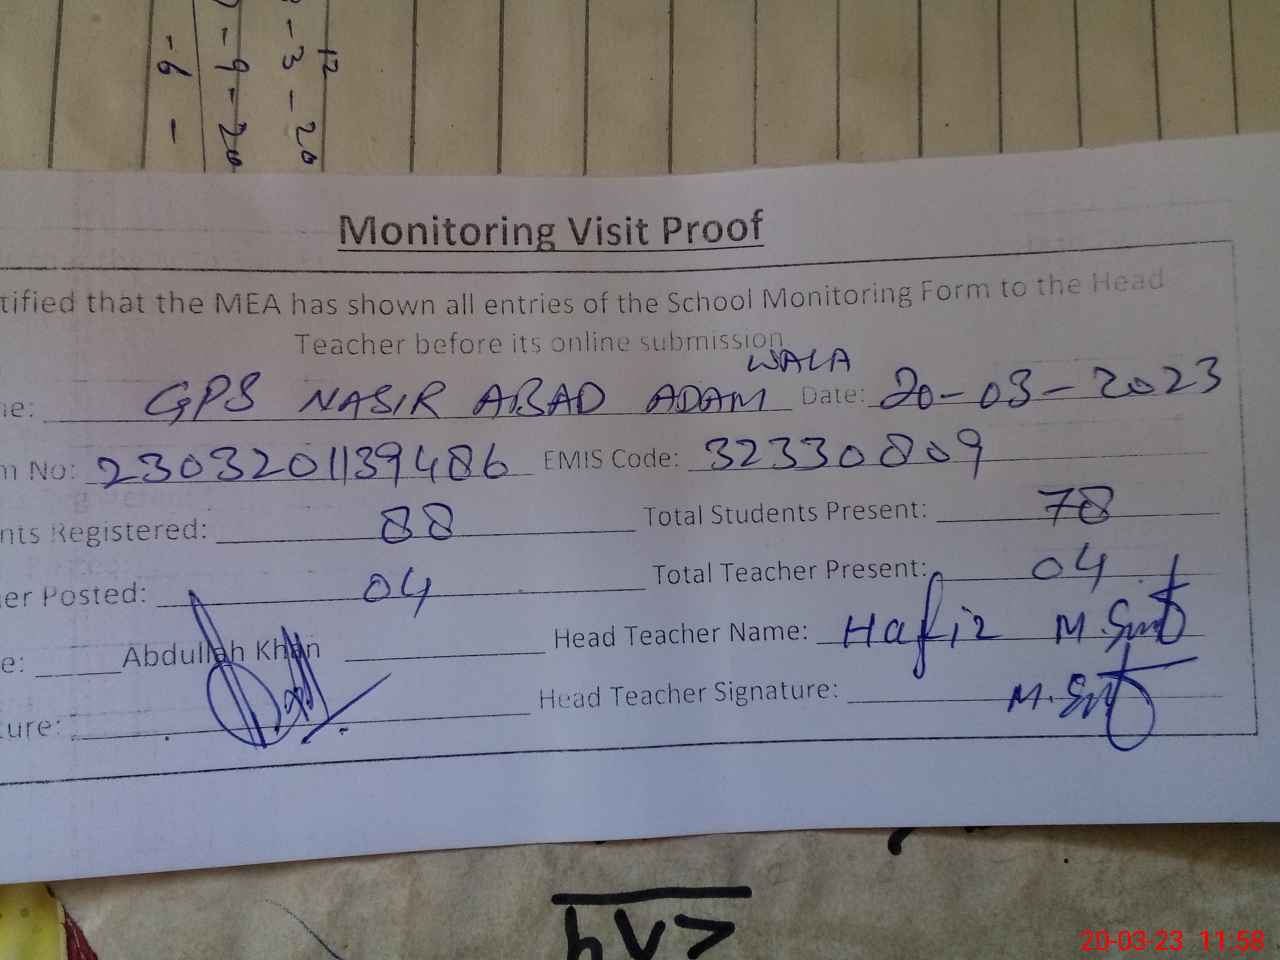 12
- 3 - 20
- 9 - 20
- 6 -
Monitoring Visit Proof
tified that the MEA has shown all entries of the School Monitoring Form to the Head
Teacher before its online submission
WALA
ne: GPS NASIR ABAD ADAM Date: 20-03-2023
m No: 2303201139486 EMIS Code: 32330809
nts Registered: 88 Total Students Present: 78
er Posted: 04 Total Teacher Present: 04
e: Abdullah Khan Head Teacher Name: Hafiz M.
ture: Head Teacher Signature: M.
20-03-23 11:58